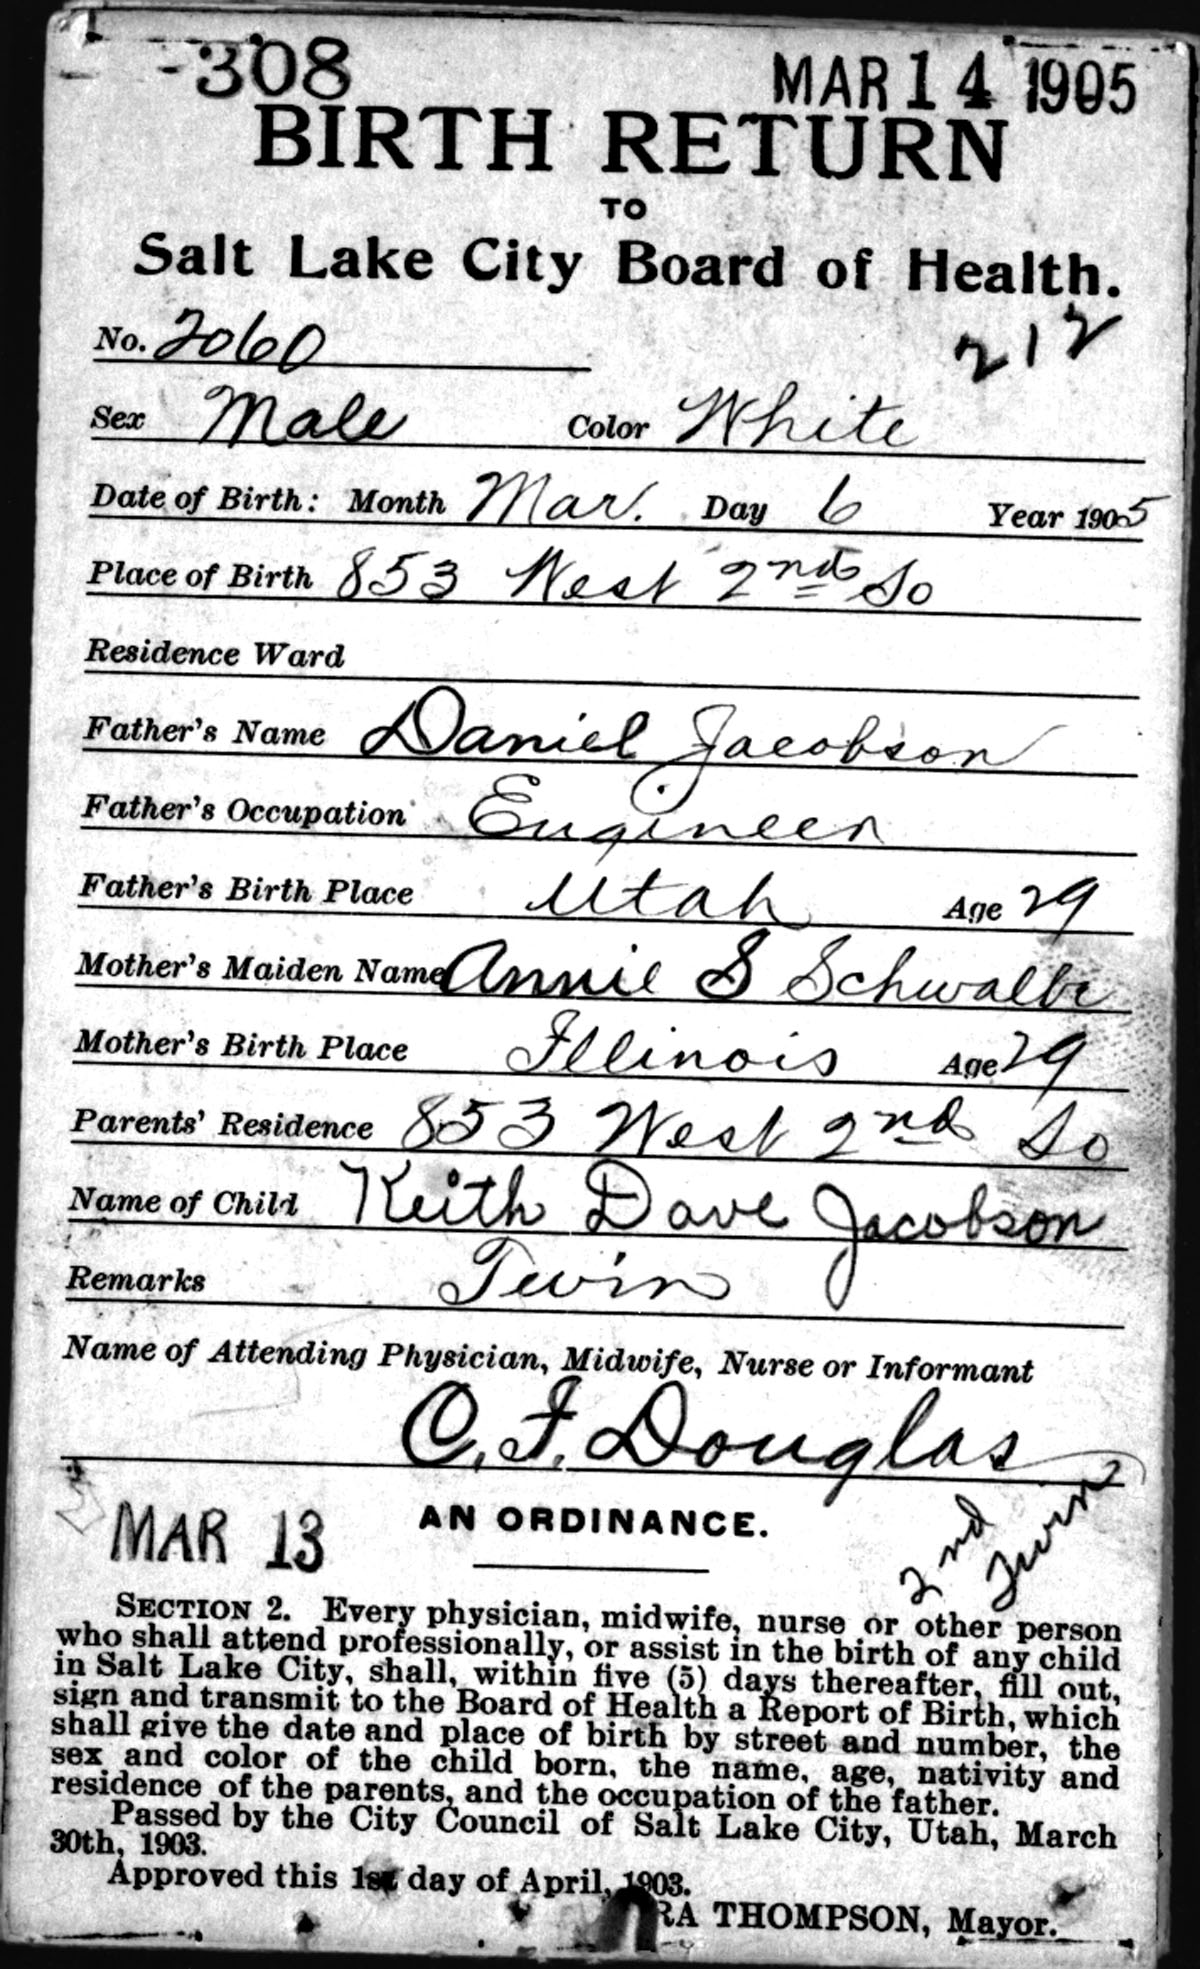 308 MAR 14 1905
BIRTH RETURN
TO
Salt Lake City Board of Health.
No. 2060 212
Sex Male Color White
Date of Birth: Month Mar. Day 6 Year 1905
Place of Birth 853 West 2nd So
Residence Ward
Father's Name Daniel Jacobson
Father's Occupation Engineer
Father's Birth Place Utah Age 29
Mother's Maiden Name Annie S Schwalbe
Mother's Birth Place Illinois Age 29
Parents' Residence 853 West 2nd So
Name of Child Keith Dave Jacobson
Remarks Twin
Name of Attending Physician, Midwife, Nurse or Informant
C. F. Douglas
MAR 13 AN ORDINANCE. 2nd Twin
SECTION 2. Every physician, midwife, nurse or other person
who shall attend professionally, or assist in the birth of any child
in Salt Lake City, shall, within five (5) days thereafter, fill out,
sign and transmit to the Board of Health a Report of Birth, which
shall give the date and place of birth by street and number, the
sex and color of the child born, the name, age, nativity and
residence of the parents, and the occupation of the father.
Passed by the City Council of Salt Lake City, Utah, March
30th, 1903.
Approved this 1st day of April, 1903.
RA THOMPSON, Mayor.